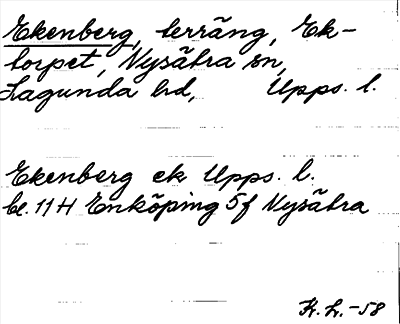 Ekenberg, terräng, Ek-
torpet, Nysätra sn,
Lagunda hd, Upps. l.
Ekenberg ek Upps. l.
bl. 11 H Enköping 5f Nysätra
K. L. -58